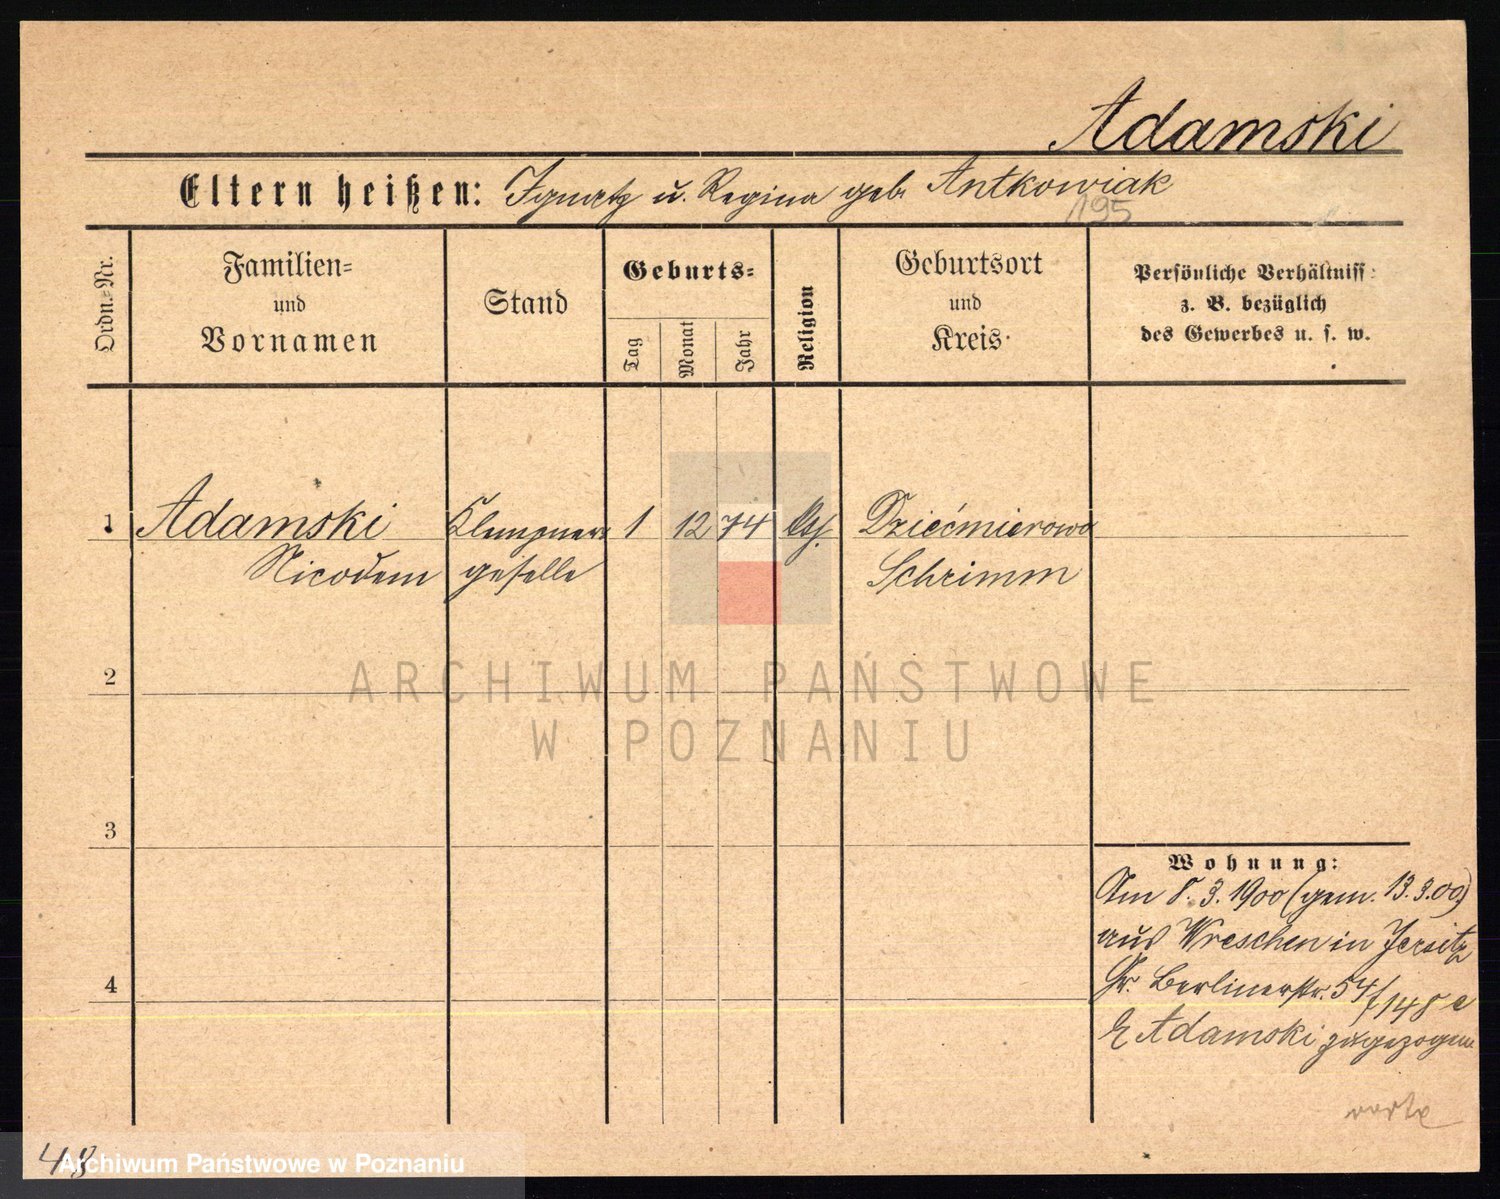 Adamski
Eltern heißen: Ignatz u. Regina geb. Antkowiak
195
Ordn.-Nr.
Familien=
und
Vornamen
Stand
Geburts=
Tag
Monat
Jahr
Religion
Geburtsort
und
Kreis
Persönliche Verhältniss
z. B. bezüglich
des Gewerbes u. s. w.
1 Adamski Klempner 1 12 74 Dziećmierowo
Nicodem geselle Schrimm
2
ARCHIWUM PAŃSTWOWE
W POZNANIU
3
Wohnung:
Am 8. 3. 1900 (gem. 13. 3. 00)
aus Wreschen in Jersitz
4
Gr. Berlinerstr. 54/148 e
Adamski zugezogen
48
Archiwum Państwowe w Poznaniu